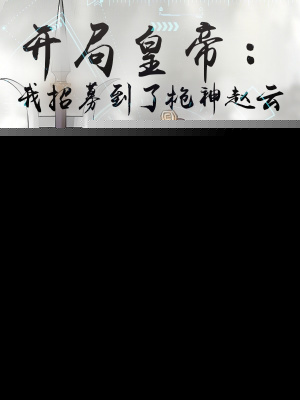 开局皇帝：
我招募到了枪神赵云